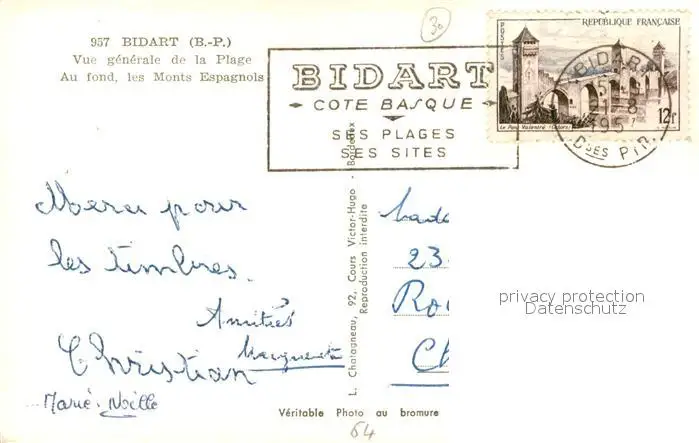 957 BIDART (B.-P.)
Vue générale de la Plage
Au fond, les Monts Espagnols
30
BIDART
COTE BASQUE
SES PLAGES
SES SITES
REPUBLIQUE FRANÇAISE
POSTES
12f
Le Pont Valentré (Cahors)
BIDART
Dses PYR.
Merci pour
les timbres.
Amitiés
Christian
Marie-Noëlle
L. Chatagneau, 92, Cours Victor-Hugo - Bordeaux
Reproduction interdite
23
privacy protection
Datenschutz
Véritable Photo au bromure
64